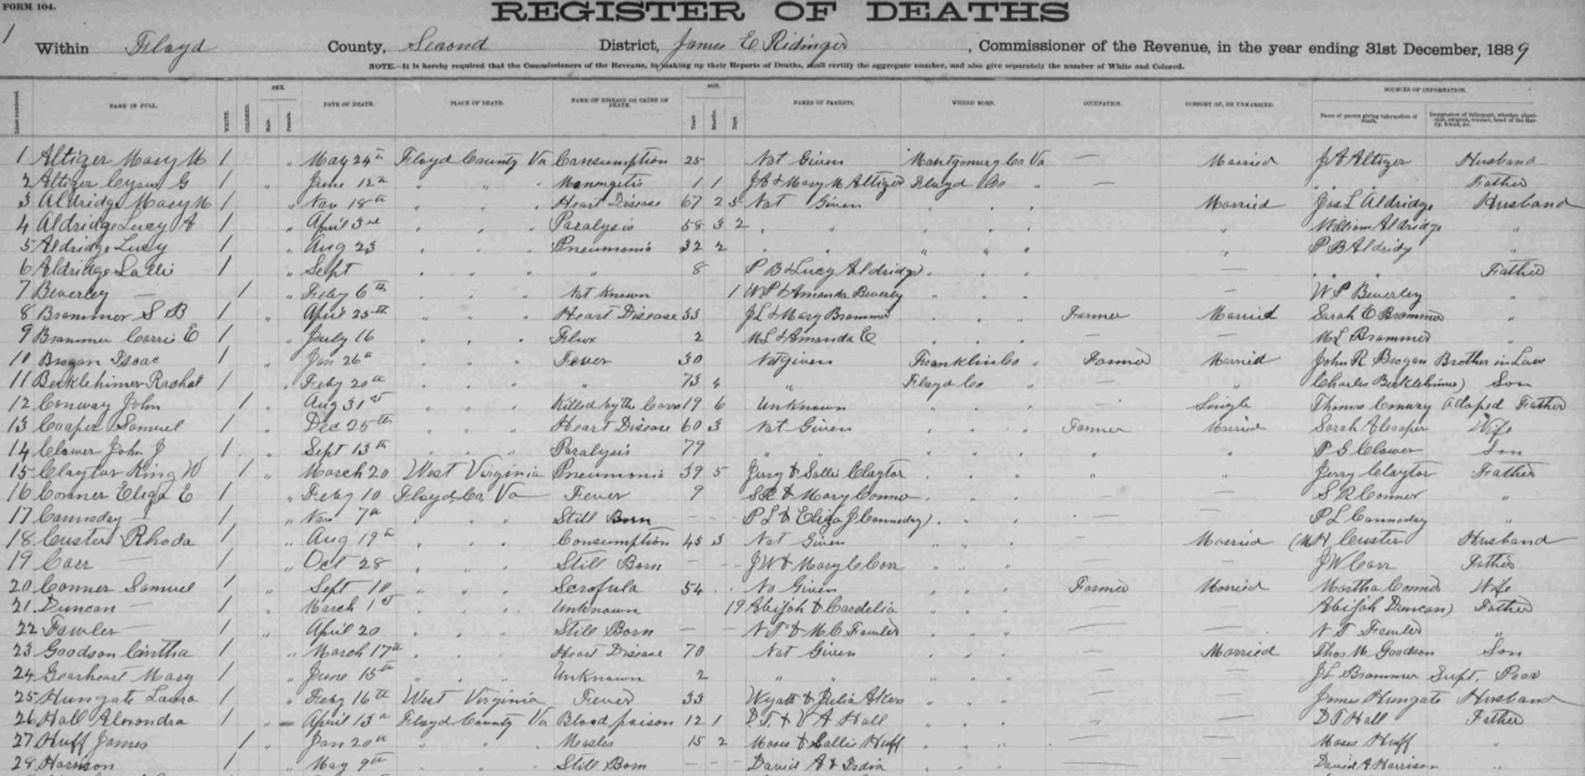 FORM 104.
REGISTER OF DEATHS
1
Within Floyd County, Second District, James E Ridinger, Commissioner of the Revenue, in the year ending 31st December, 1889
NOTE.—It is hereby required that the Commissioners of the Revenue, in making up their Reports of Deaths, shall certify the aggregate number, and also give separately the number of White and Colored.
SEX. AGE. SOURCES OF INFORMATION.
NAME IN FULL. WHITE. COLORED. Male. Female. DATE OF DEATH. PLACE OF DEATH. NAME OF DISEASE OR CAUSE OF DEATH. Years Months Days NAMES OF PARENTS. WHERE BORN. OCCUPATION. CONSORT OF, OR UNMARRIED. Name of person giving information of death.
1 Altizer Mary M 1 " May 24th Floyd County Va Consumption 25 Not Given Montgomery Co Va — Married J A Altizer Husband
2 Altizer G 1 " June 12th " " " Menengitis 1 1 J A & Mary M Altizer Floyd Co " — " " Father
3 Aldridge Mary M 1 " Nov 18th " " " Heart Disease 67 2 5 Not Given " " " Married Jas L Aldridge Husband
4 Aldridge Lucy A 1 " April 3rd " " " Paralysis 58 3 2 " " " " " — " William Aldridge "
5 Aldridge Lucy 1 " Aug 23 " " " Pneumonia 32 2 " " " " " — " P B Aldridge "
6 Aldridge Sallie 1 " Sept " " " " 8 P B & Lucy Aldridge " " " — " " Father
7 Beverley — 1 " Feby 6th " " " Not Known 1 W P & Amanda Beverley " " " — W P Beverley "
8 Brammer S B 1 " April 25th " " " Heart Disease 33 J L & Mary Brammer " " " Farmer Married Sarah E Brammer "
9 Brammer Carrie E 1 " July 16 " " " Flux 2 M L & Amanda E " " " — — M L Brammer "
10 Brogan Isaac 1 " Jan 26th " " " Fever 30 Not given Franklin Co " Farmer Married John R Brogan Brother in Law
11 Beckleheimer Rachel 1 " Feby 20th " " " " 73 4 " Floyd Co " — " Charles Beckleheimer Son
12 Conway John 1 " Aug 31st " " " Killed by the Cars 19 6 Unknown " " " — Single Thomas Conway Adopted Father
13 Cooper Samuel 1 " Dec 25th " " " Heart Disease 60 3 Not Given " " " Farmer Married Sarah A Cooper Wife
14 Clower John J 1 " Sept 13th " " " Paralysis 79 " " " " " " " P G Clower Son
15 Claytor King W 1 " March 20 West Virginia Pneumonia 39 5 Jerry & Sallie Claytor " " " — — Jerry Claytor Father
16 Conner Eliza E 1 " Feby 10 Floyd Co, Va Fever 9 S R & Mary Conner " " " — — S R Conner "
17 Cannaday — 1 " Nov 7th " " " Still Born - - - P L & Eliza J Cannaday " " " — — P L Cannaday "
18 Custer Rhoda 1 " Aug 19th " " " Consumption 45 3 Not Given " " " — Married H Custer Husband
19 Carr — 1 " Oct 28 " " " Still Born - - - J W & Mary C Carr " " " — — J W Carr Father
20 Conner Samuel 1 " Sept 10 " " " Scrofula 54 No Given " " " Farmer Married Martha Conner Wife
21 Duncan — 1 " March 1st " " " Unknown 19 Abijah & Cordelia " " " — Abijah Duncan Father
22 Fowler — 1 " April 20 " " " Still Born — — N T & M C Fowler " " " — — N T Fowler "
23 Goodson Cintha 1 " March 17th " " " Heart Disease 70 Not Given " " " — Married Thos M Goodson Son
24 Gearheart Mary 1 " June 15th " " " Unknown 2 " " " " " — — J L Brammer Supt, Poor
25 Hungate Laura 1 " Feby 16th West Virginia Fever 33 Wyatt & Julia Akers " " " — James Hungate Husband
26 Hall 1 " April 13th Floyd County Va Blood poison 12 1 D T & V A Hall " " " — — D T Hall Father
27 Huff James 1 " Jan 20th " " " Measles 15 2 Moses & Sallie Huff " " " — — Moses Huff "
28 Harrison 1 " May 9th " " " Still Born - - - David A & India " " " — — David A Harrison "